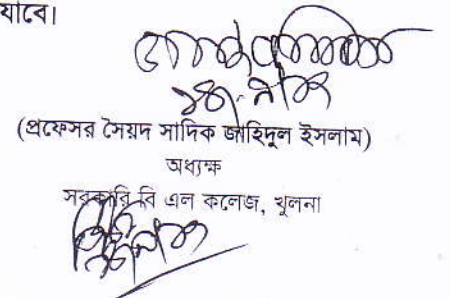 যাবে।
(প্রফেসর সৈয়দ সাদিক জাহিদুল ইসলাম)
অধ্যক্ষ
সরকারি বি এল কলেজ, খুলনা